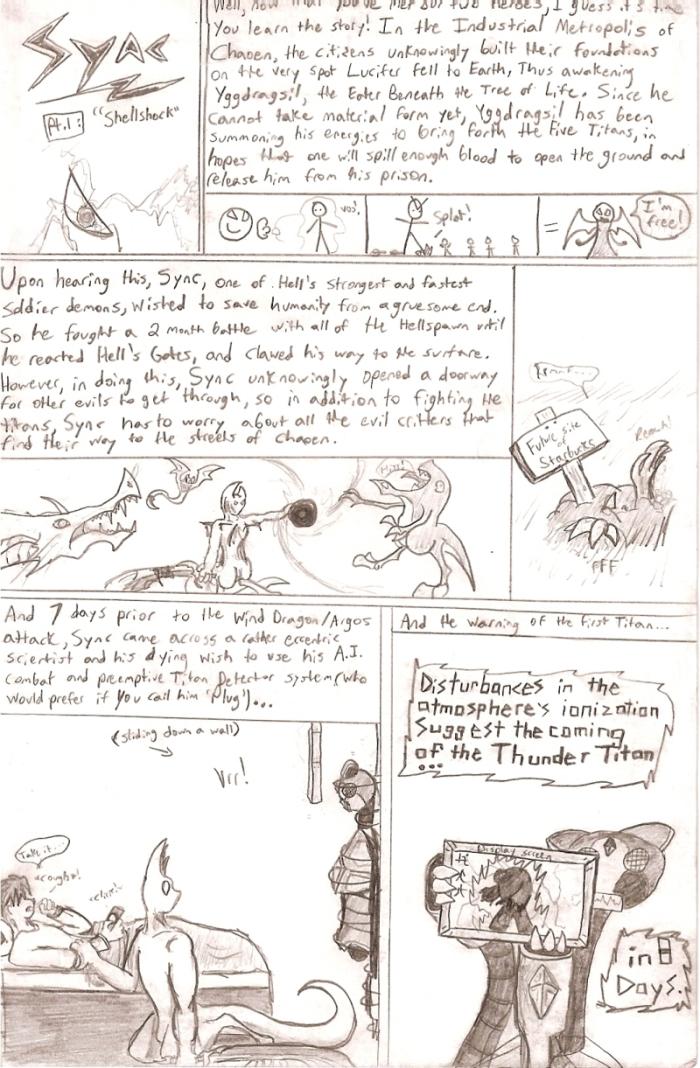 Sync
Pt.1: "Shellshock"
Well, now that you've met our two heroes, I guess it's time
You learn the story! In the Industrial Metropolis of
Chaoen, the citizens unknowingly built their foundations
on the very spot Lucifer fell to Earth, Thus awakening
Yggdragsil, the Eater Beneath the Tree of Life. Since he
cannot take material form yet, Yggdragsil has been
summoning his energies to bring forth the Five Titans, in
hopes that one will spill enough blood to open the ground and
release him from his prison.
Splat!
=
I'm
free!
Upon hearing this, Sync, one of Hell's strongest and fastest
Soldier demons, wished to save humanity from a gruesome end.
So he fought a 2 month battle with all of the Hellspawn until
he reached Hell's Gates, and clawed his way to the surface.
However, in doing this, Sync unknowingly opened a doorway
for other evils to get through, so in addition to fighting the
titans, Sync has to worry about all the evil critters that
find their way to the streets of Chaoen.
Future site
of
Starbucks
Reach!
And 7 days prior to the Wind Dragon/Argos
attack, Sync came across a rather eccentric
scientist and his dying wish to use his A.I.
Combat and preemptive Titan Detector system (who
would prefer if you call him 'Plug')...
(sliding down a wall)
Vrr!
Take it...
*cough*!
And the warning of the first Titan...
Disturbances in the
atmosphere's ionization
Suggest the coming
of the Thunder Titan
...
Display screen
in 8
Days.